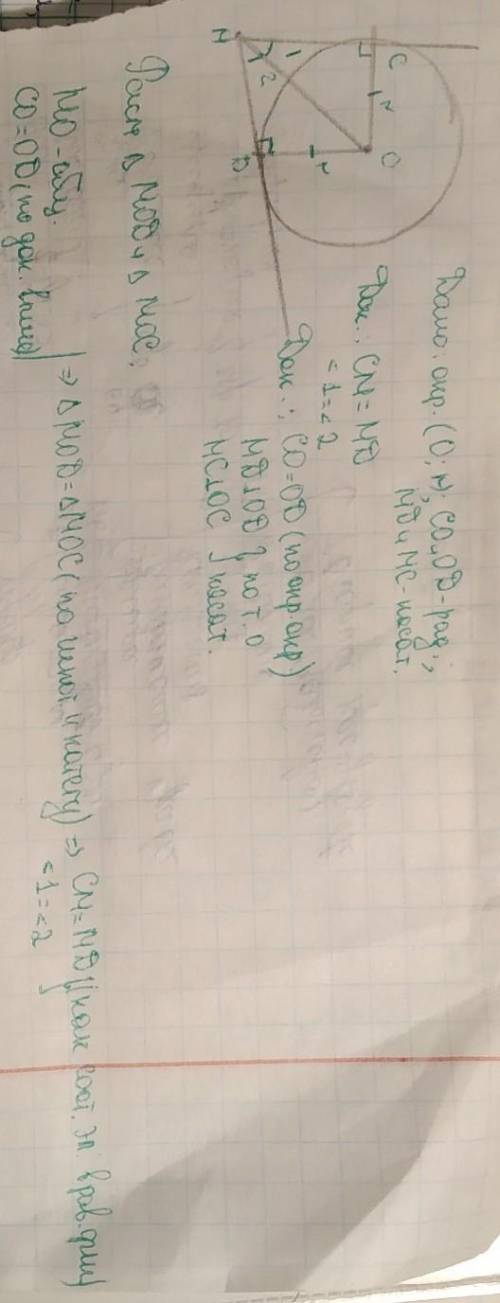 Дано: окр. (O; r), CO и OD - рад.,
MD и MC - касат.
Док.: CM = MD
<1 = <2
Док.: CO = OD (по опр. окр.)
MD⊥OD } по т. о
MC⊥OC } касат.
M
1
2
C
r
O
r
D
Расм. Δ MOD и Δ MOC:
MO - общ.
CO = OD (по док. выше) | => Δ MOD = Δ MOC (по гипот. и катету) => CM = MD } (как соот. эл. в рав. фиг.)
<1 = <2